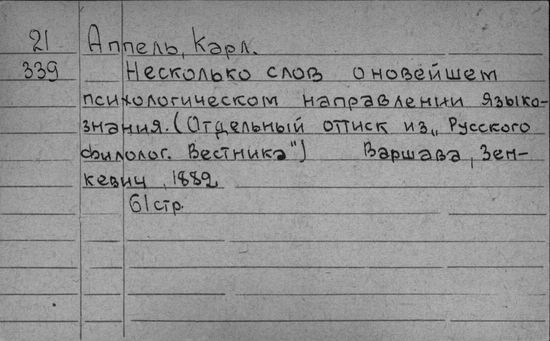 21 Аппель, Карл.
339 Несколько слов о новейшем
психологическом направлении языко-
знания. (Отдельный оттиск из „Русского
филолог. Вестника") Варшава, Зен-
кевич, 1882
61 стр.